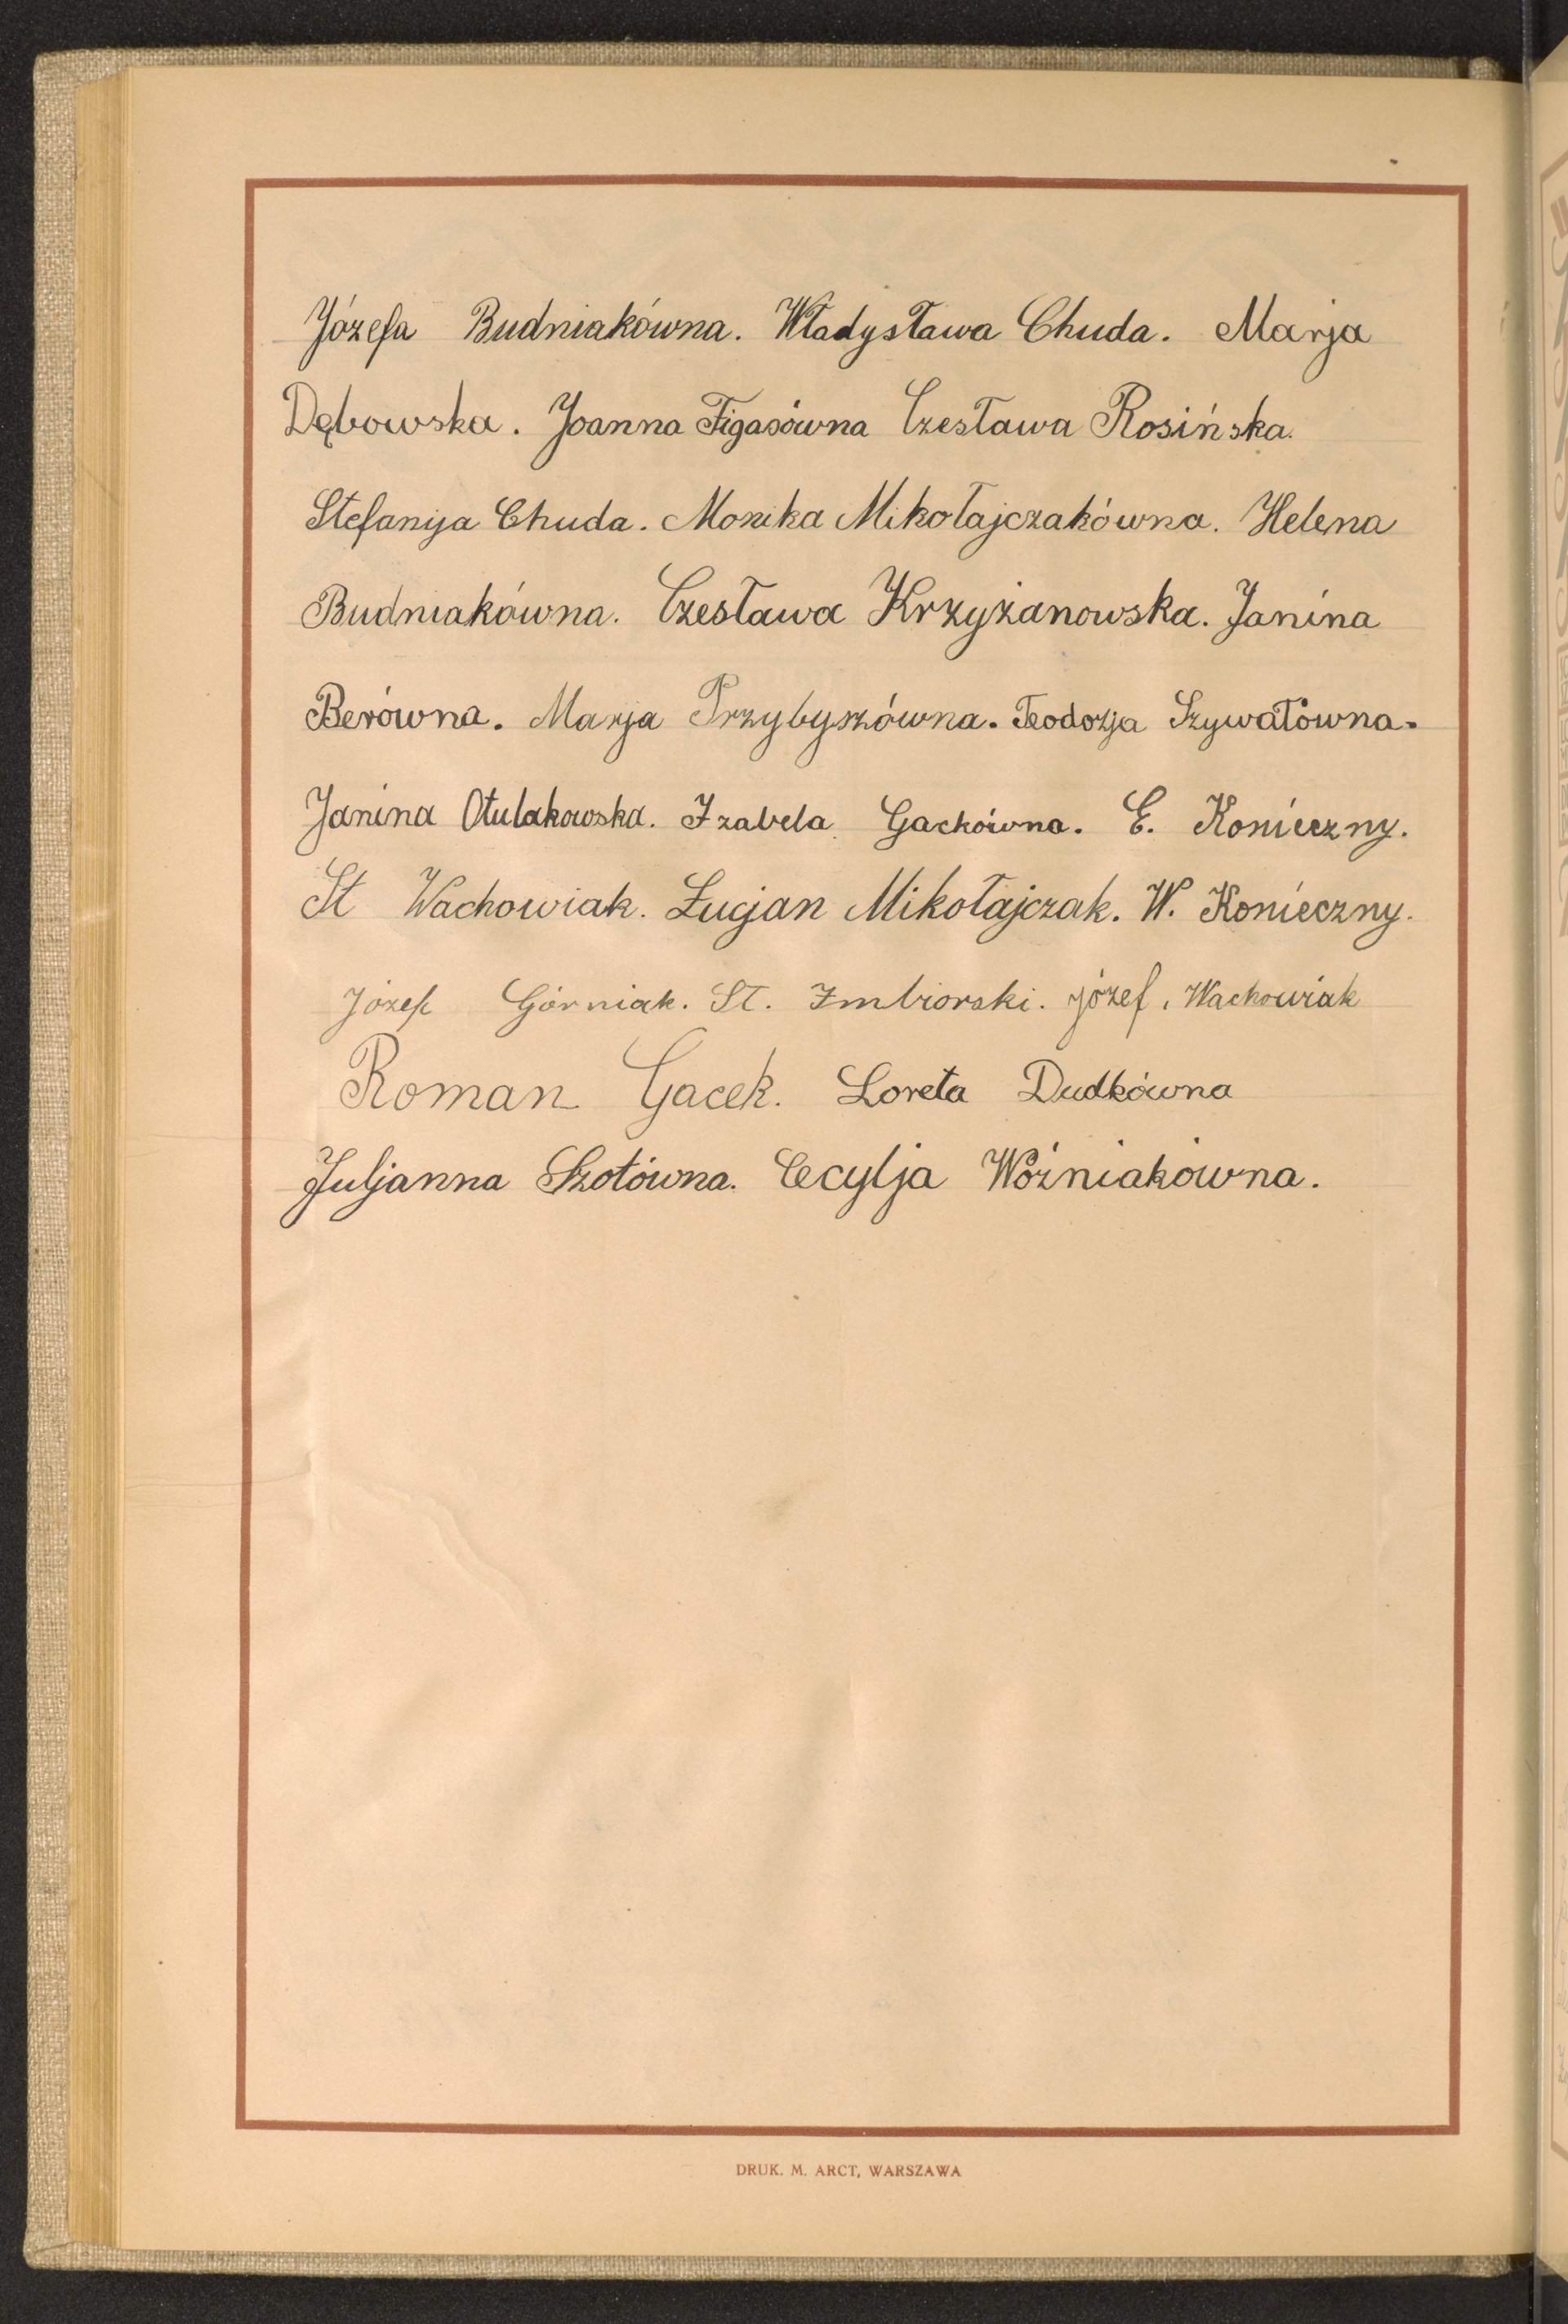 Józefa Budniakówna. Władysława Chuda. Marja
Dębowska. Joanna Figasówna Czesława Rosińska.
Stefanja Chuda. Monika Mikołajczakówna. Helena
Budniakówna. Czesława Krzyżanowska. Janina
Berówna. Marja Przybyszówna. Teodozja Szywałówna.
Janina Otulakowska. Izabela Gackówna. E. Konieczny.
St Wachowiak. Łucjan Mikołajczak. W. Konieczny.
Józef Górniak. St. Imbiorski. Józef. Wachowiak
Roman Gacek. Loreta Dudkówna
Juljanna Szotówna. Cecylja Woźniakówna.
DRUK. M. ARCT, WARSZAWA